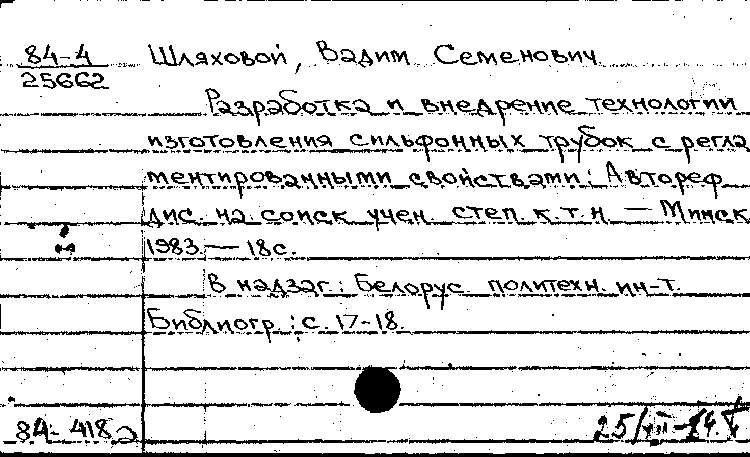 84-4 Шляховой, Вадим Семенович
25662
Разработка и внедрение технологии
изготовления сильфонных трубок с регла
ментированными свойствами: Автореф
дис. на соиск учен. степ. к.т.н. — Минск
1983. — 18 с.
В надзаг.: Белорус. политехн. ин-т.
Библиогр.: с. 17-18.
84-418